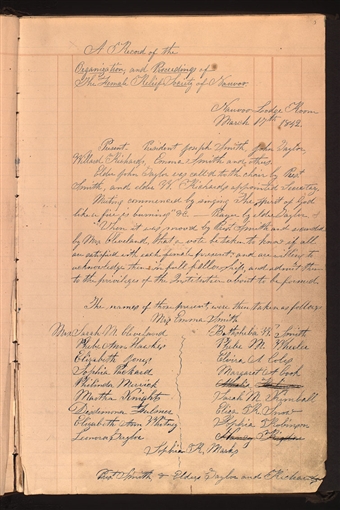 A Record of the
Organization, and Proceedings of
The Female Relief Society of Nauvoo
Nauvoo Lodge Room
March 17th 1842.
Present. President Joseph Smith, John Taylor,
Willard Richards, Emma Smith and others.
Elder John Taylor was call'd to the chair by Prest.
Smith, and elder W. Richards appointed Secretary.
Meeting commenced by singing "The Spirit of God
like a fire is burning" &c — Prayer by elder Taylor
When it was moved by Prest. Smith and seconded
by Mrs. Cleveland, that a vote be taken to know if all
are satisfied with each female present; and are willing to
acknowledge them in full fellowship, and admit them
to the privileges of the Institution about to be formed.
The names of those present were then taken as follows
Mrs. Emma Smith
Mrs. Sarah M. Cleveland Bathsheba W. Smith
Phebe Ann Hawkes Phebe M. Wheeler
Elizabeth Jones Elvira A. Coles
Sophia Packard Margaret A. Cook
Philinda Merrick
Martha Knights Sarah M. Kimball
Desdemona Fulmer Eliza R. Snow
Elizabeth Ann Whitney Sophia Robinson
Leonora Taylor
Sophia R. Marks
Prest. Smith & Elders Taylor and Richards